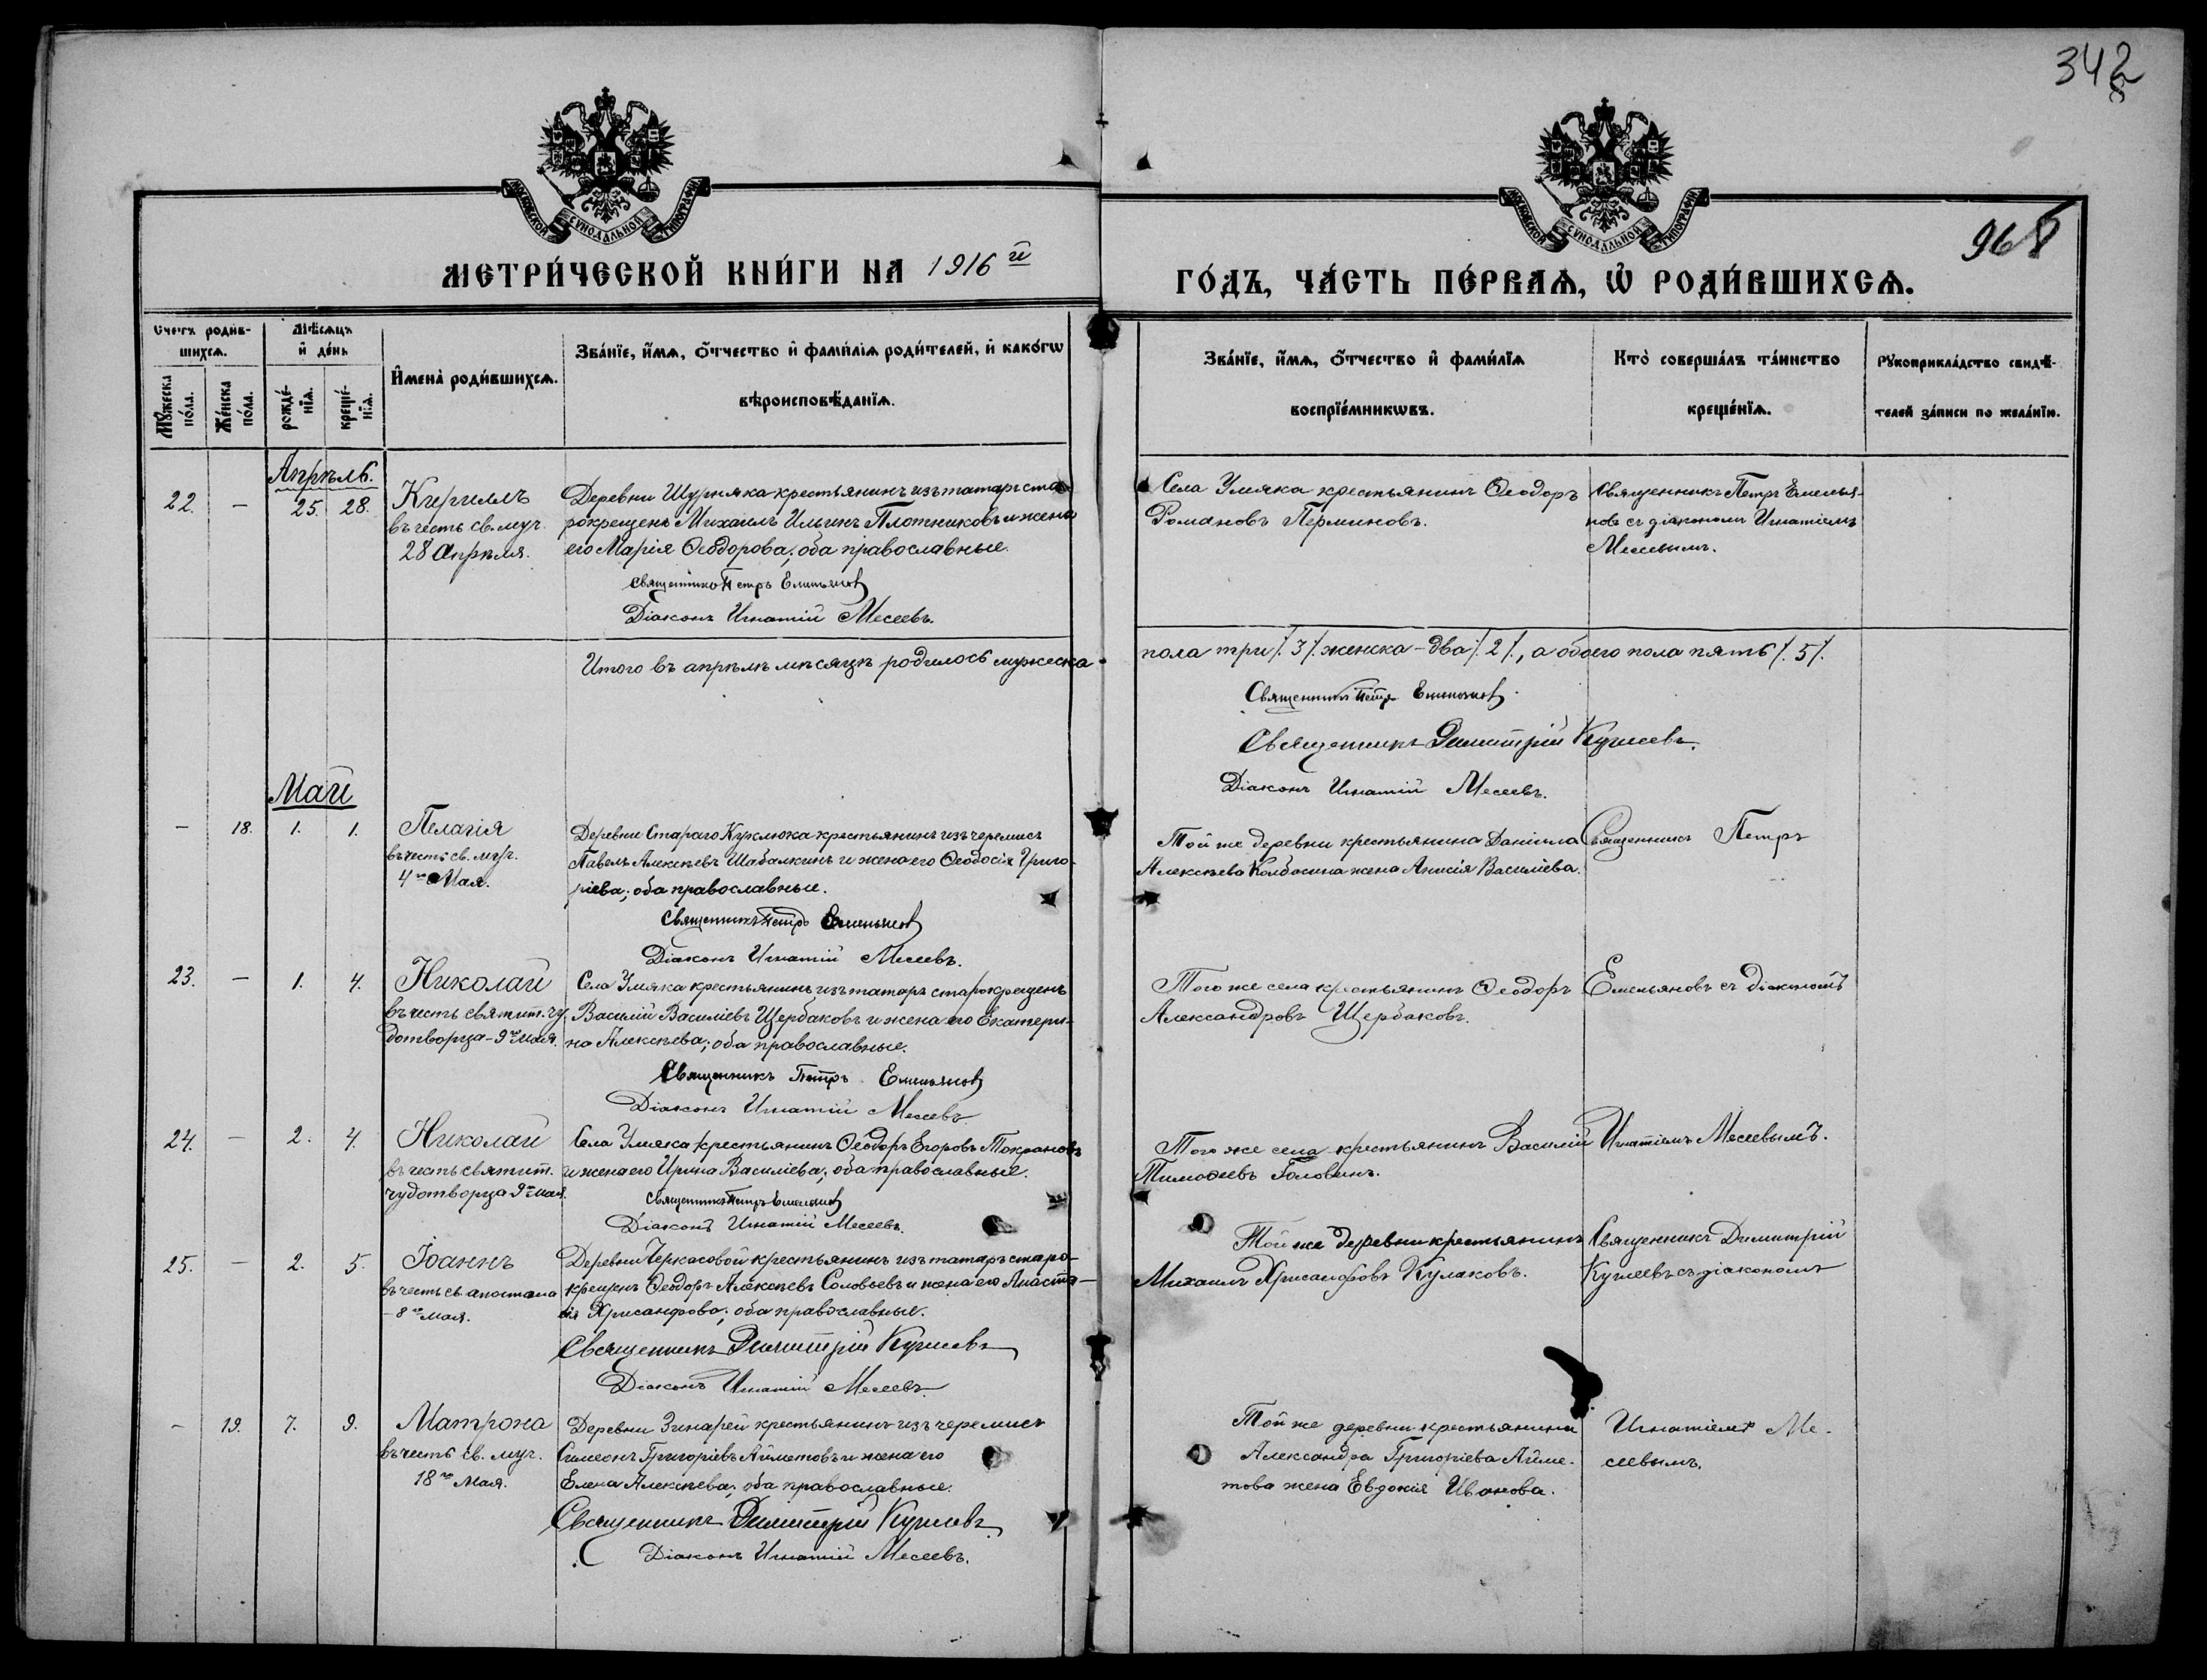 342
МОСКОВСКОЙ СУНОДАЛЬНОЙ ТИПОГРАФІИ
МОСКОВСКОЙ СУНОДАЛЬНОЙ ТИПОГРАФІИ
968
МЕТРИ́ЧЕСКОЙ КНИ́ГИ НА 1916й
ГО́ДЪ, ЧА́СТЬ ПЕ́РВАѦ, Ѡ҆ РОДИ́ВШИХСѦ.
Счетъ роди́вшихсѧ.
Мꙋ́жеска по́ла.
Же́нска по́ла.
Мѣ́сѧцъ и҆ де́нь
рожде́нїѧ.
креще́нїѧ.
И҆мена̀ роди́вшихсѧ.
Зва́нїе, и҆́мѧ, ѻ҆́тчество и҆ фами́лїѧ роди́телей, и҆ како́гѡ
вѣроисповѣ́данїѧ.
Зва́нїе, и҆́мѧ, ѻ҆́тчество и҆ фами́лїѧ
воспрїе́мникѡвъ.
Кто̀ соверша́лъ та́инство
креще́нїѧ.
Рꙋкоприкла́дство свидѣ́-
телей за́писи по жела́нїю.
Апрѣль.
22. — 25. 28.
Кириллъ
въ честь св. муч.
28 Апрѣля.
Деревни Шурняка крестьянинъ изъ татаръ ста-
рокрещенъ Михаилъ Ильинъ Плотниковъ и жена
его Марія Ѳеодорова; оба православные.
Священникъ Петръ Емельянов
Діаконъ Игнатій Месеевъ.
Села Умяка крестьянинъ Ѳеодоръ
Романовъ Перминовъ.
Священникъ Петръ Емелья-
новъ съ діакономъ Игнатіемъ
Месеевымъ.
Итого въ апрѣлѣ мѣсяцѣ родилось мужеска
пола три /. 3 /. женска - два /. 2 /., а обоего пола пять /. 5 /.
Священникъ Петръ Емельянов.
Священникъ Димитрій Кузмеевъ.
Діаконъ Игнатій Месеевъ.
Май
— 18. 1. 1.
Пелагія
въ честь св. муч.
4го Мая.
Деревни Стараго Куклюка крестьянинъ изъ черемисъ
Павелъ Алексѣевъ Шабалкинъ и жена его Ѳеодосія Григо-
ріева; оба православные.
Священникъ Петръ Емельянов
Діаконъ Игнатій Месеевъ.
Той же деревни крестьянина Даніила
Алексѣева Колбасина жена Анисія Василіева.
Священникъ Петръ
23. — 1. 4.
Николай
въ честь святит. чу-
дотворца - 9го мая.
Села Умяка крестьянинъ изъ татаръ старокрещенъ
Василій Василіевъ Щербаковъ и жена его Екатери-
на Алексѣева; оба православные.
Священникъ Петръ Емельянов
Діаконъ Игнатій Месеевъ
Того же села крестьянинъ Ѳеодоръ
Александровъ Щербаковъ.
Емельяновъ съ діакономъ
24. — 2. 4.
Николай
въ честь святит.
чудотворца 9го мая.
Села Умяка крестьянинъ Ѳеодоръ Егоровъ Токрановъ
и жена его Ирина Василіева; оба православные.
Священникъ Петръ Емельянов
Діаконъ Игнатій Месеевъ.
Того же села крестьянинъ Василій
Тимоѳеевъ Головинъ.
Игнатіемъ Месеевымъ.
25. — 2. 5.
Іоаннъ
въ честь св. апостола
- 8го мая.
Деревни Черкасовой крестьянинъ изъ татаръ старо-
крещенъ Ѳеодоръ Алексѣевъ Соловьевъ и жена его Анаста-
сія Хрисанфова; оба православные.
Священникъ Димитрій Кузмеевъ
Діаконъ Игнатій Месеевъ
Той же деревни крестьянинъ
Михаилъ Хрисанфовъ Кулаковъ.
Священникъ Димитрій
Кузмеевъ съ діакономъ
— 19. 7. 9.
Матрона
въ честь св. муч.
18го Мая.
Деревни Зинарей крестьянинъ изъ черемисъ
Симеонъ Григоріевъ Айметовъ и жена его
Елена Алексѣева; оба православные.
Священникъ Димитрій Кузмеевъ
Діаконъ Игнатій Месеевъ.
Той же деревни крестьянина
Александра Григоріева Айме-
това жена Евдокія Иванова.
Игнатіемъ Ме-
сеевымъ.